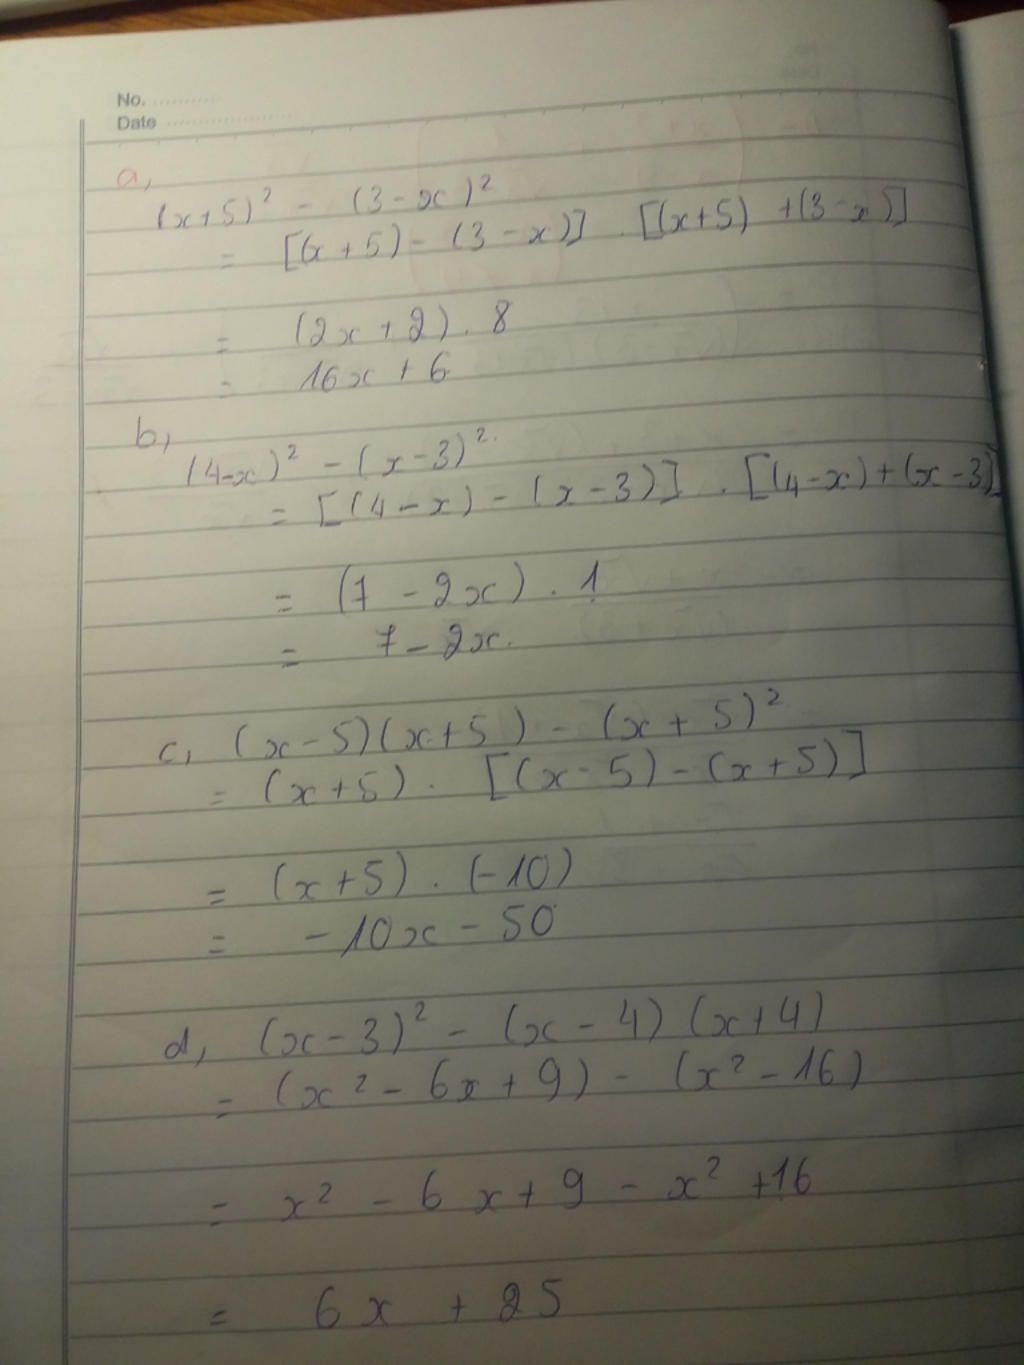 No. ............
Date ....................
a,
(x+5)² - (3-x)²
= [(x+5) - (3-x)] . [(x+5) + (3-x)]
= (2x+2) . 8
= 16x + 6
b,
(4-x)² - (x-3)².
= [(4-x) - (x-3)] . [(4-x)+(x-3)]
= (7 - 2x) . 1
= 7 - 2x.
c, (x-5)(x+5) - (x+5)²
= (x+5) . [(x-5) - (x+5)]
= (x+5) . (-10)
= -10x - 50
d, (x-3)² - (x-4) (x+4)
= (x² - 6x + 9) - (x² - 16)
= x² - 6x + 9 - x² + 16
= 6x + 25